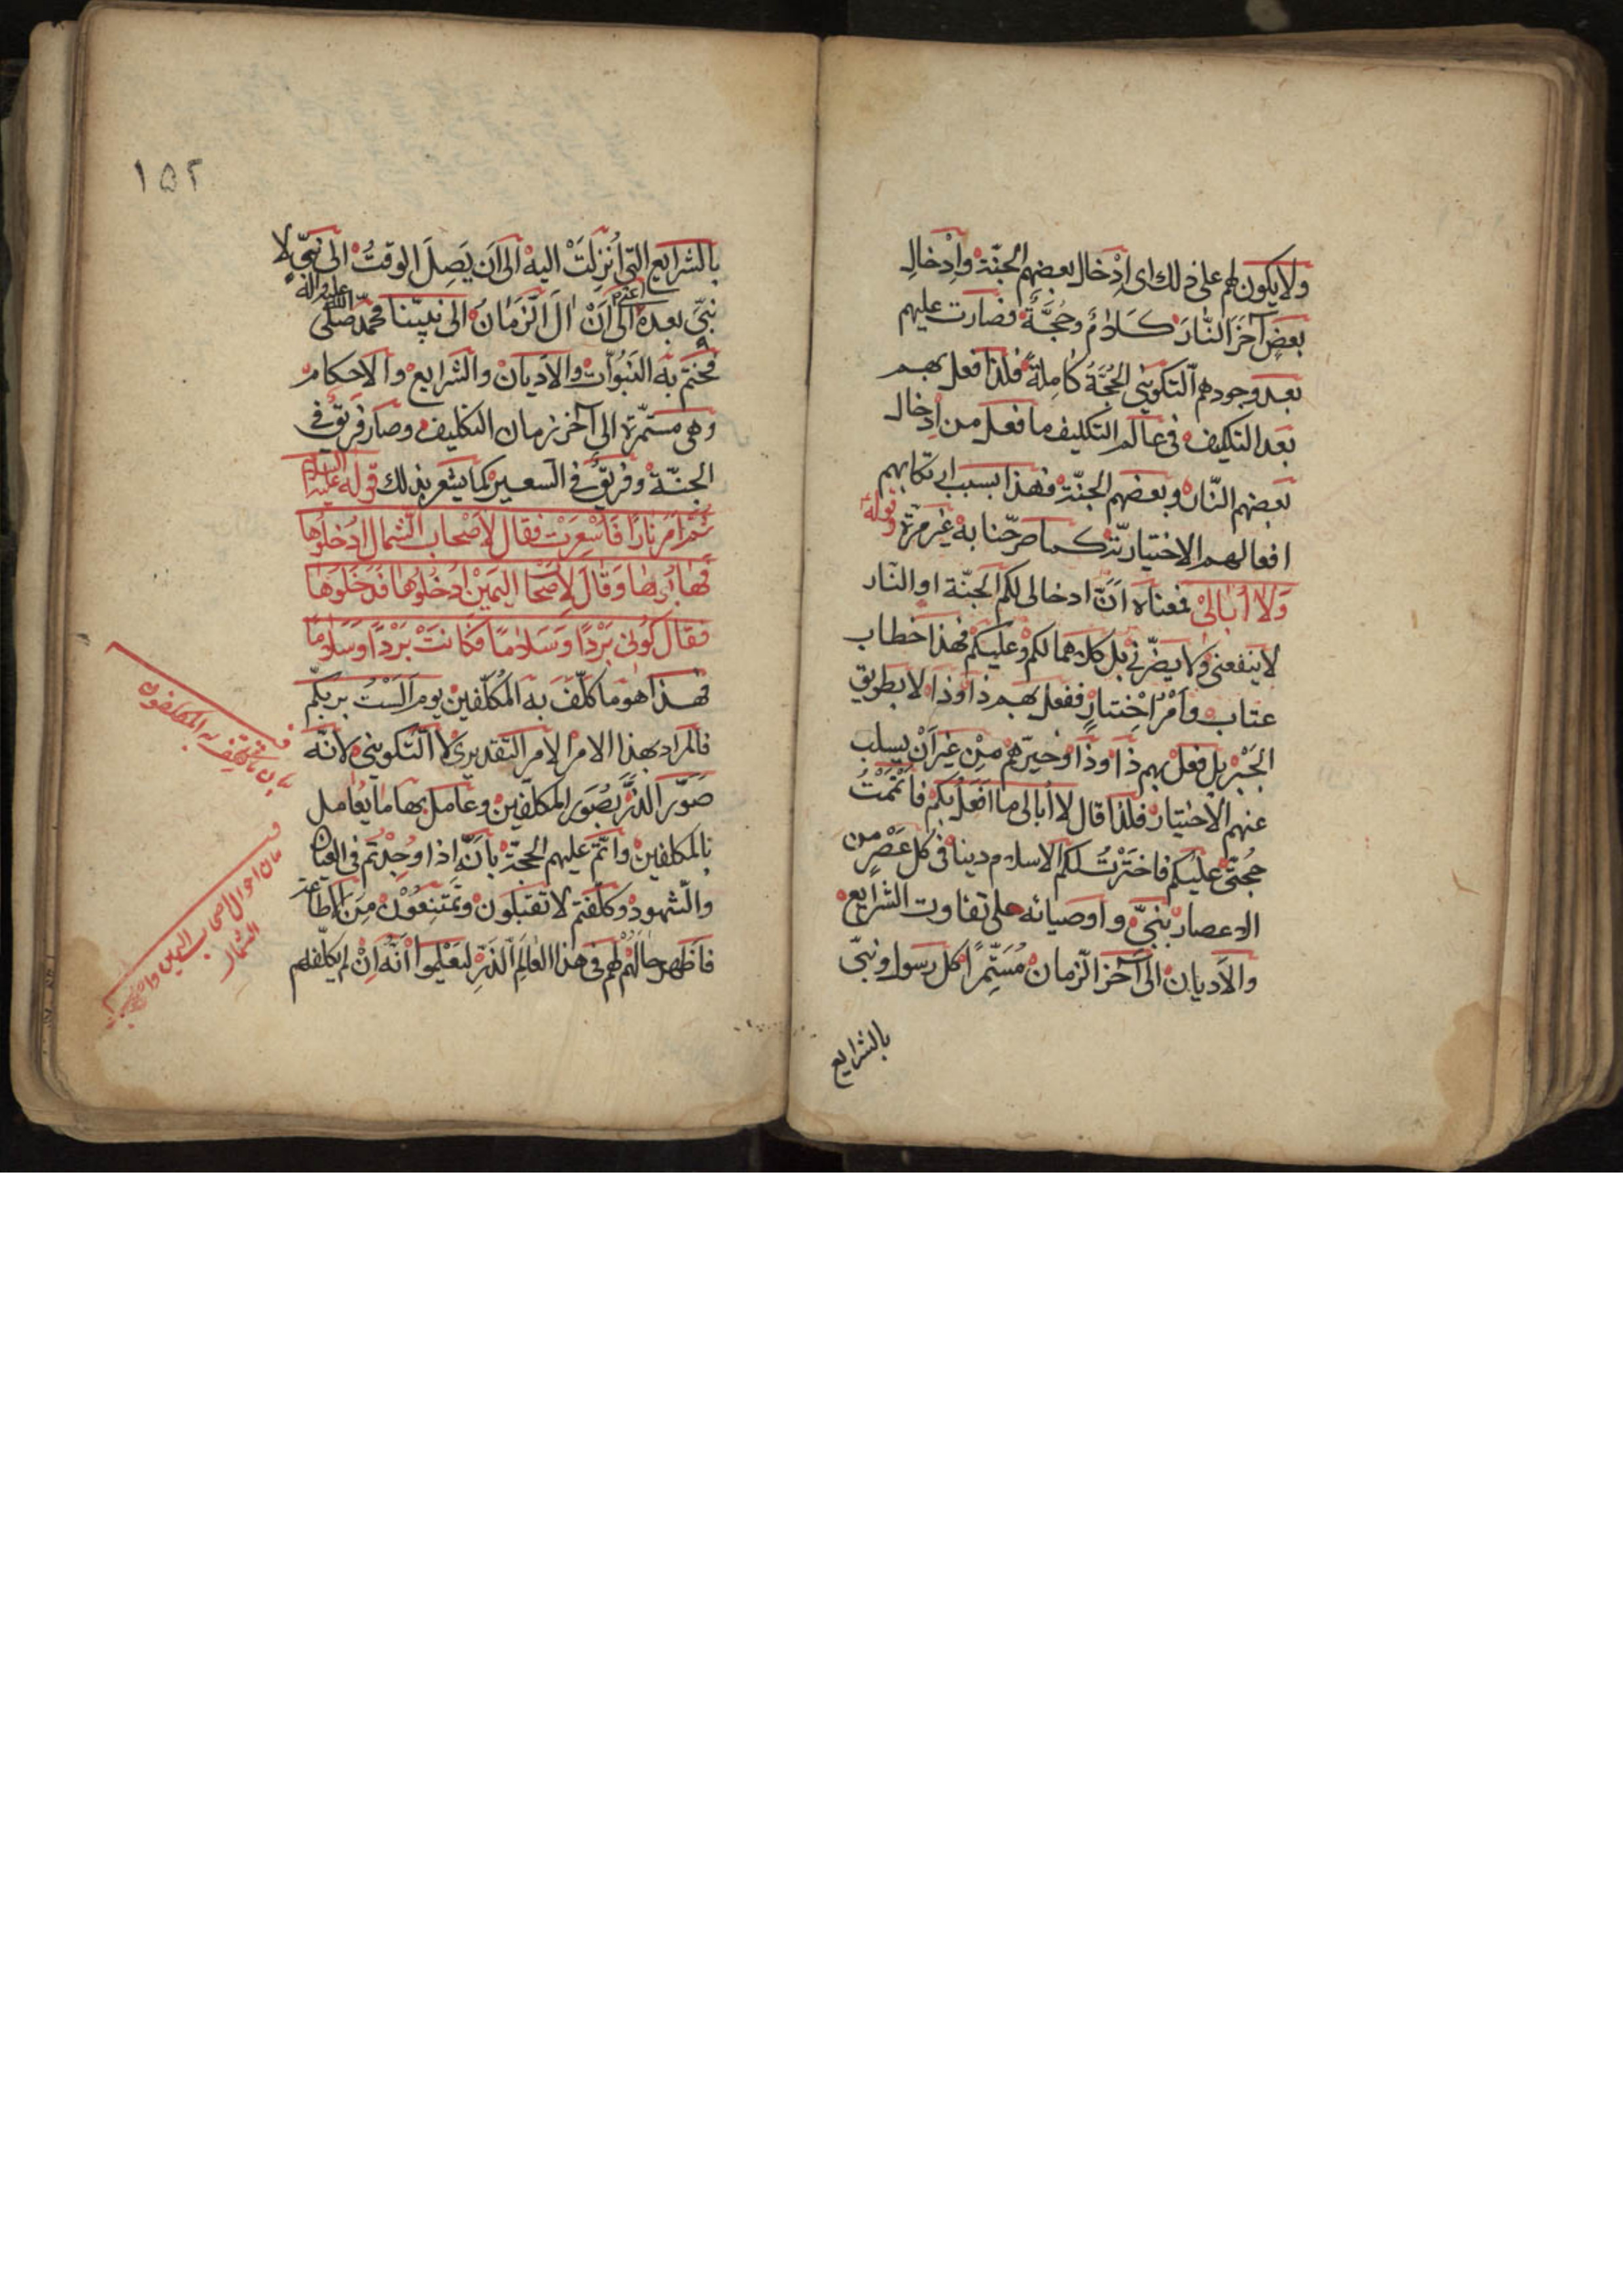 ولا يكون لهم على ذلك اى اِدْخال بعضهم الجنّة واِدْخالِ
بعضٍ آخَرَ النّارَ كَلامٌ وحُجَّةٌ فصارت عليهم
بعد وجودهم التكوينى الحُجَّةُ كامِلةً فلذا فعل بهم
بعد التكليف فى عالم التكليف ما فعل من اِدخال
بعضهم النّار وبعضهم الجنّة فهذا بسبب ارتكابهم
افعالهم الاختياريّة كما صرّحنا به غير مرّة وقوله
وَلا اُبٰالىْ فمعناه اَنّ ادخالى لكم الجنّة او النار
لا ينفعنى ولا يضرّنى بل كلاهما لكم وعليكم فهذا خطاب
عتاب واَمْرُ اخْتيارٍ ففعل بهم ذا وذا لا بطريق
الجَبْر بل فعل بهم ذا وذا وخيّرهم مِنْ غير اَنْ يسلب
عنهم الاختيار فلذا قال لا اُبالى ما افعل بكم فاَتْمَمْتُ
حُجّتى عليكم فاخترْتُ لكم الاسلام دينا فى كل عَصْرٍ من
الاعصار بنبىّ واوصيائه على تفاوت الشرايع
والاَديان الى آخر الزّمان مُسْتَمِّراً كل رسول ونبىّ
بالشرايع
١٥٢
بالشرايع التى اُنزِلَتْ اليه الى اَن يَصِلَ الوقتُ الى نبىّ لا
نبىَّ بعده اعنى الى اَنْ اٰلَ الزَمٰانُ الى نبيّنا محمّد صلى الله عليه واله
فختم به النبُوّات والاديان والشرايع والاحكام
وهى مستمّرة الى آخر زمان التكليف وصار فريق فى
الجنّة وفريق فى السعير كما يشعر بذلك قوله عليه السلام
ثُمَّ اَمَرَ نٰارًا فَاُسْعِرَتْ فقال لاَصْحٰاب الشّمال اُدخلُوهٰا
فَهٰابُوهٰا وَقٰالَ لِاَصْحٰا اليَمينِ اُدْخُلُوهٰا فَدَخَلُوهٰا
فقال كُونى بَرْدًا وَسَلٰامًا فَكٰانتْ بَرْدًا وَسَلٰامًا
فهذا هو ما كلّف به المُكلّفين يوم اَلَسْتُ بربّكم
فالمراد بهذا الامر الامر التقديرى لا التّكوينى لانّه
صَوّر الذرَّ بصُوَر المكلّفين وعامل بها ما يُعامل
بالمكلفين واتمّ عليهم الحجّة بانّه اِذا وُجِدْتم فى العيان
والشهود وكلّفتم لا تقبلون وتمتنعُوْن مِنَ الاطاعة
فاَظهر حالَهُمْ لهم فى هذا العٰالَمِ الذَرِّ ليَعْلموا اَنّه اِنْ لم يكلّفهم
بيان ما كلّف به المكلفون
بيان احوال اصحاب اليمين
الشمال